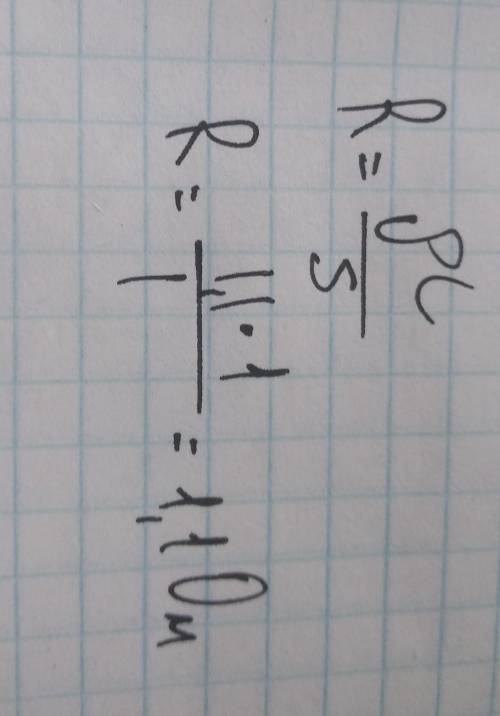 R = ρl / S
R = 1,1 · 1 / 1 = 1,1 Ом